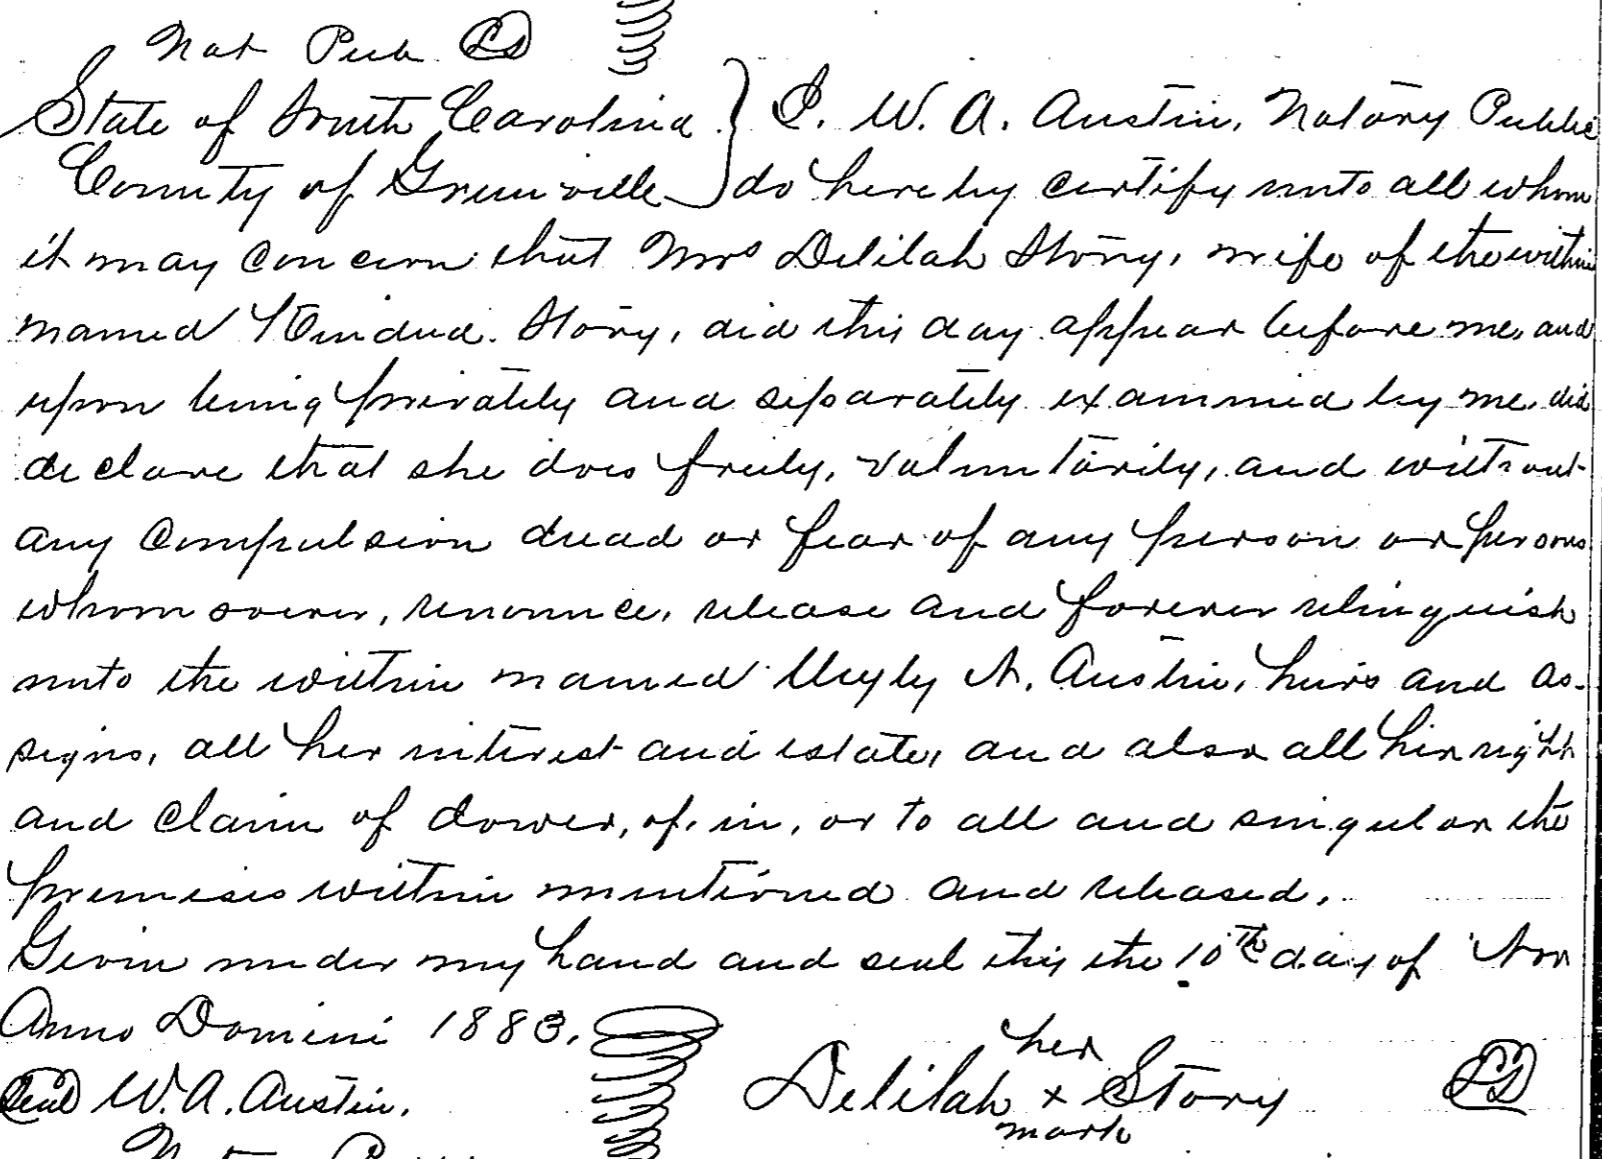 Not Pub LS
State of South Carolina } I. W. A. Austin, Notary Public
County of Greenville } do hereby certify unto all whom
it may concern that Mrs Delilah Story, wife of the within
named Story, did this day appear before me, and
upon being privately and separately examined by me, did
declare that she does freely, voluntarily, and without
any compulsion dread or fear of any person or persons
whomsoever, renounce, release and forever relinquish
unto the within named A. Austin, heirs and as-
signs, all her interest and estate, and also all her right
and claim of dower, of, in, or to all and singular the
premises within mentioned and released.
Given under my hand and seal this the 10th day of Nov
Anno Domini 1883.
her
Seal W. A. Austin. Delilah x Story LS
mark